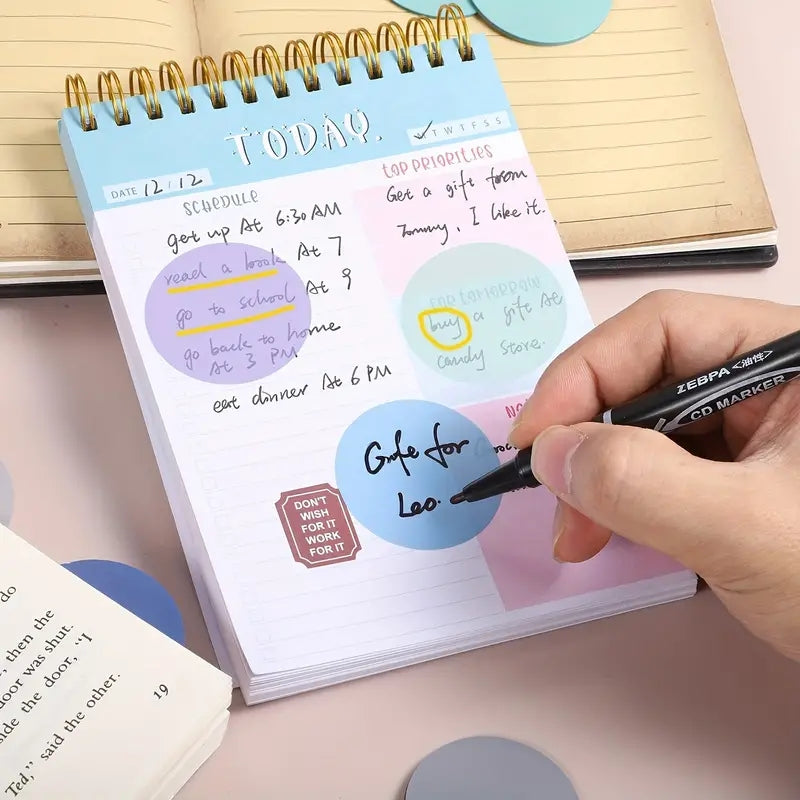 TODAY.
DATE 12 / 12
T W T F S S
SCHEDULE
get up At 6:30 AM
read a book At 7
go to school At 9
go back to home
At 3 PM
eat dinner At 6 PM
TOP PRIORITIES
Get a gift from
Tommy, I like it.
FOR TOMORROW
buy a gift At
candy store.
Gife for
Leo.
DON'T
WISH
FOR IT
WORK
FOR IT
ZEBPA <油性>
CD MARKER
do
, then the
door was shut.
side the door, "I
Ted," said the other.
19